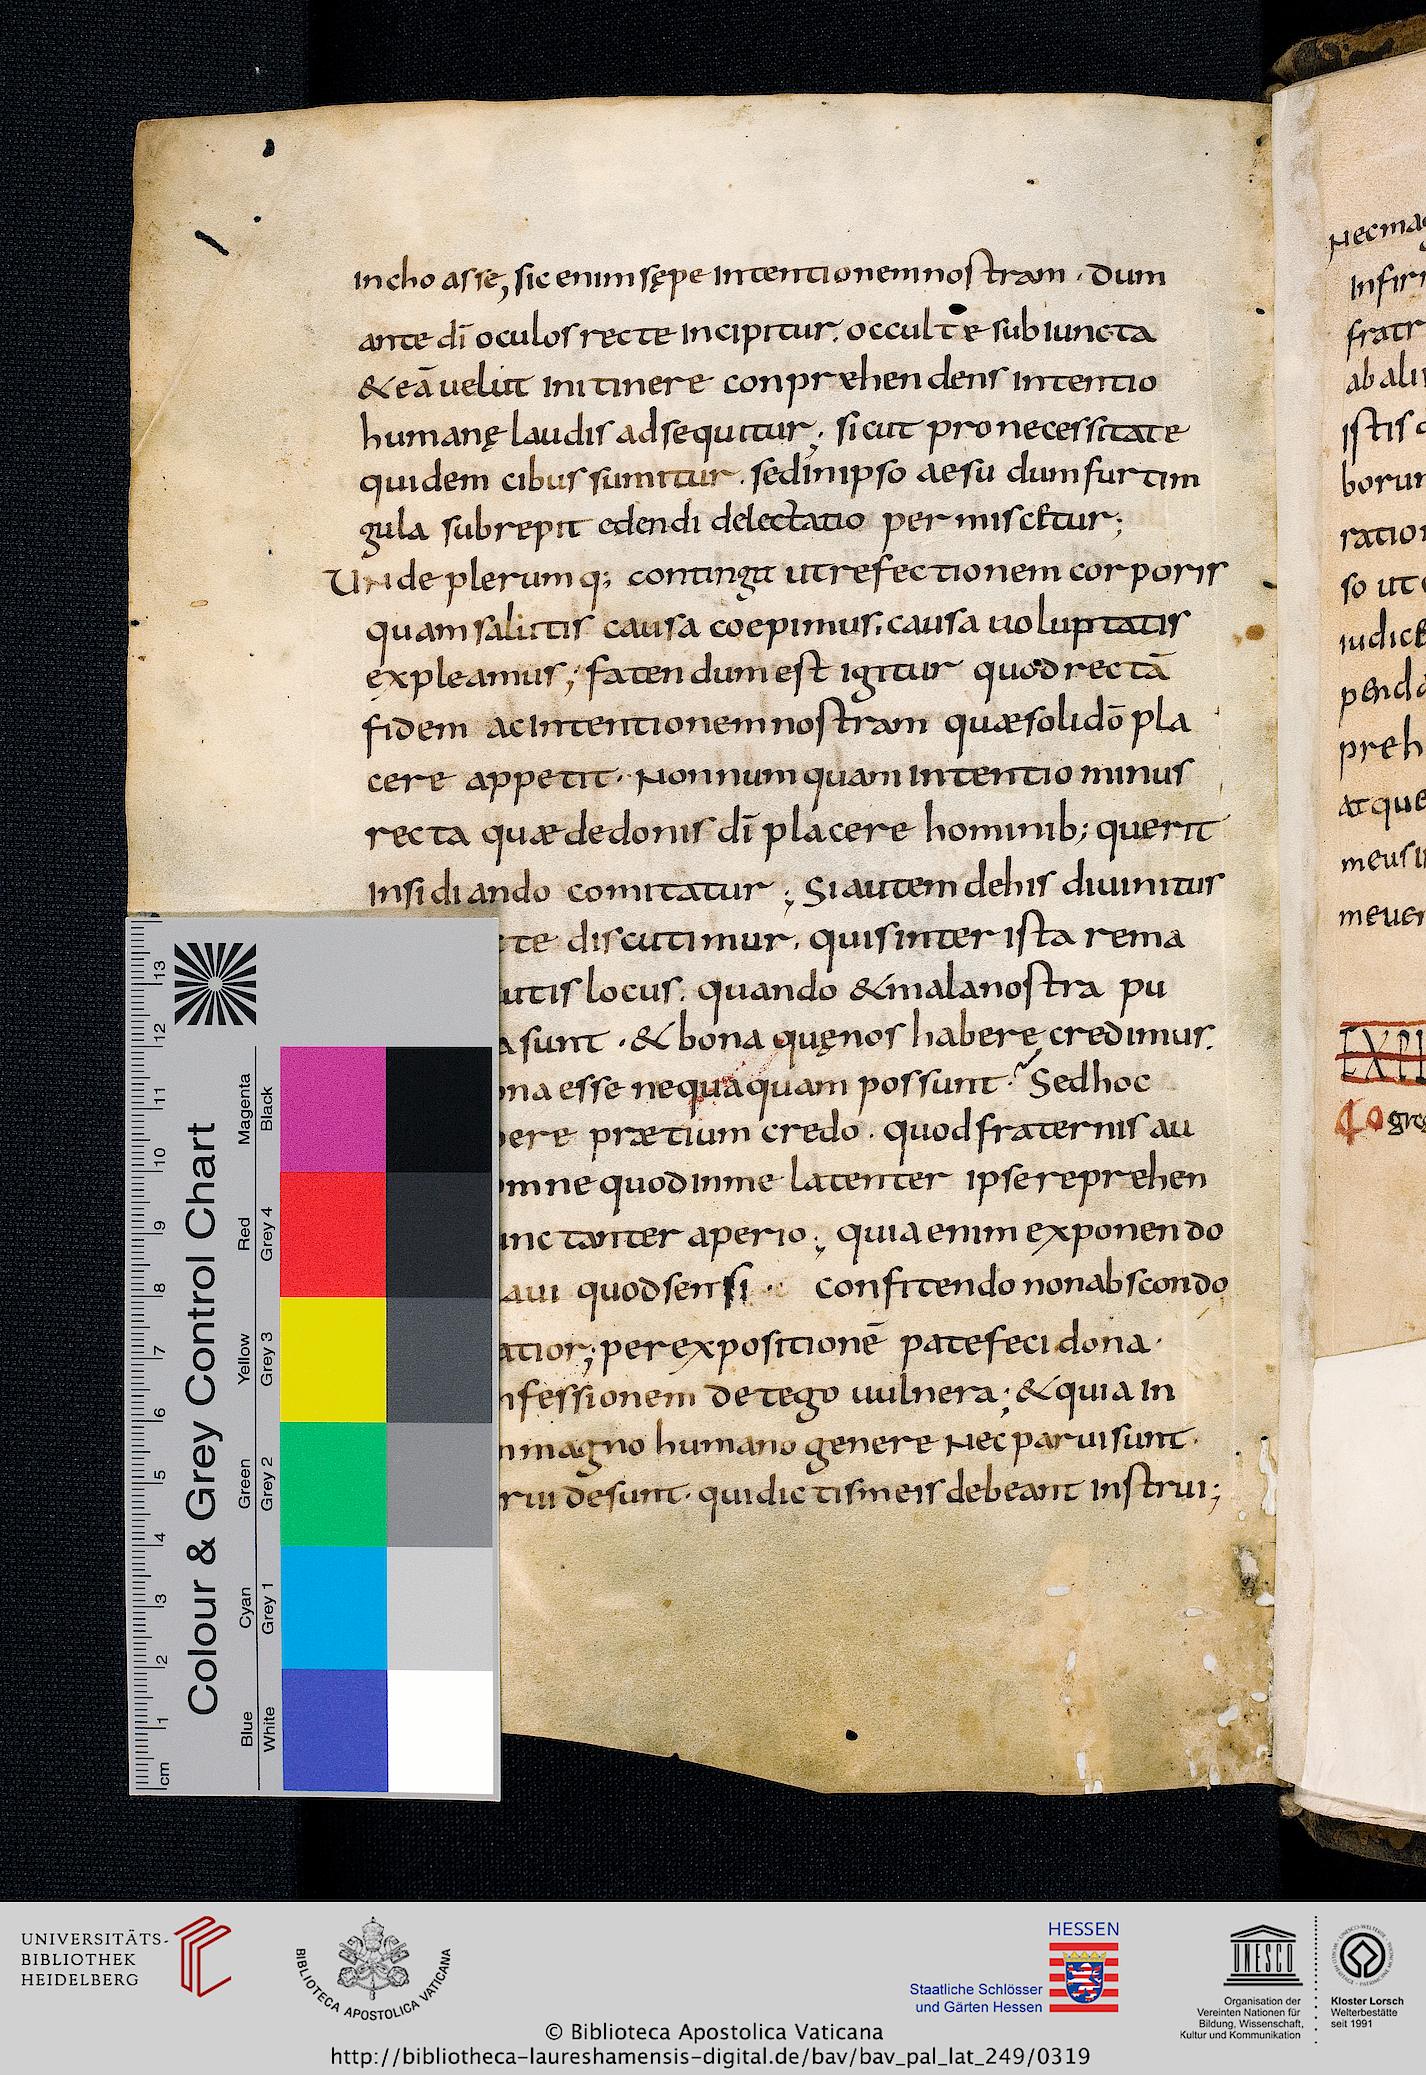 Incho asse, sic enim sępe Intentionem nostram · dum
ante dī oculos recte Incipitur. occulte subiuncta
& eā uelut In itinere conprehendens Intentio
humanę laudis adsequitur; sicut pro necessitate
quidem cibus sumitur. sed in ipso aesu dum furtim
gula subrepit edendi delectatio permiscetur;
Unde plerumq; contingit ut refectionem corporis
quam salutis causa coepimus. causa uoluptatis
expleamus; fatendum est igitur quod rectā
fidem ac Intentionem nostram quae soli dō pla
cere appetit · Nonnumquam Intentio minus
recta quae de donis dī placere hominib; querit
Insidiando comitatur; Si autem de his diuinitus
te discutimur. quis inter ista rema
utis locus. quando & mala nostra pu
a sunt · & bona quę nos habere credimus.
na esse nequaquam possunt · Sed hoc
ere praetium credo · quod fraternis au
mne quod in me latenter ipse reprehen
unctanter aperio; quia enim exponendo
aui quod sensi · confitendo non abscondo
atior; per expositionē patefeci dona ·
nfessionem detego uulnera; & quia In
magno humano genere Nec parui sunt ·
rui desunt · qui dictis meis debeant Instrui;
Nec ma
Infir
fratr
ab ali
istis
borun
ration
so ut
iudic&
pend
preh
atque
meus
meuer
EXPLI
gre
Colour & Grey Control Chart
Magenta Red Yellow Green Cyan Blue
Black Grey 4 Grey 3 Grey 2 Grey 1 White
13 12 11 10 9 8 7 6 5 4 3 2 1 cm
UNIVERSITÄTS-
BIBLIOTHEK
HEIDELBERG
BIBLIOTECA APOSTOLICA VATICANA
HESSEN
Staatliche Schlösser
und Gärten Hessen
UNESCO
Organisation der
Vereinten Nationen für
Bildung, Wissenschaft,
Kultur und Kommunikation
Kloster Lorsch
Welterbestätte
seit 1991
© Biblioteca Apostolica Vaticana
http://bibliotheca-laureshamensis-digital.de/bav/bav_pal_lat_249/0319